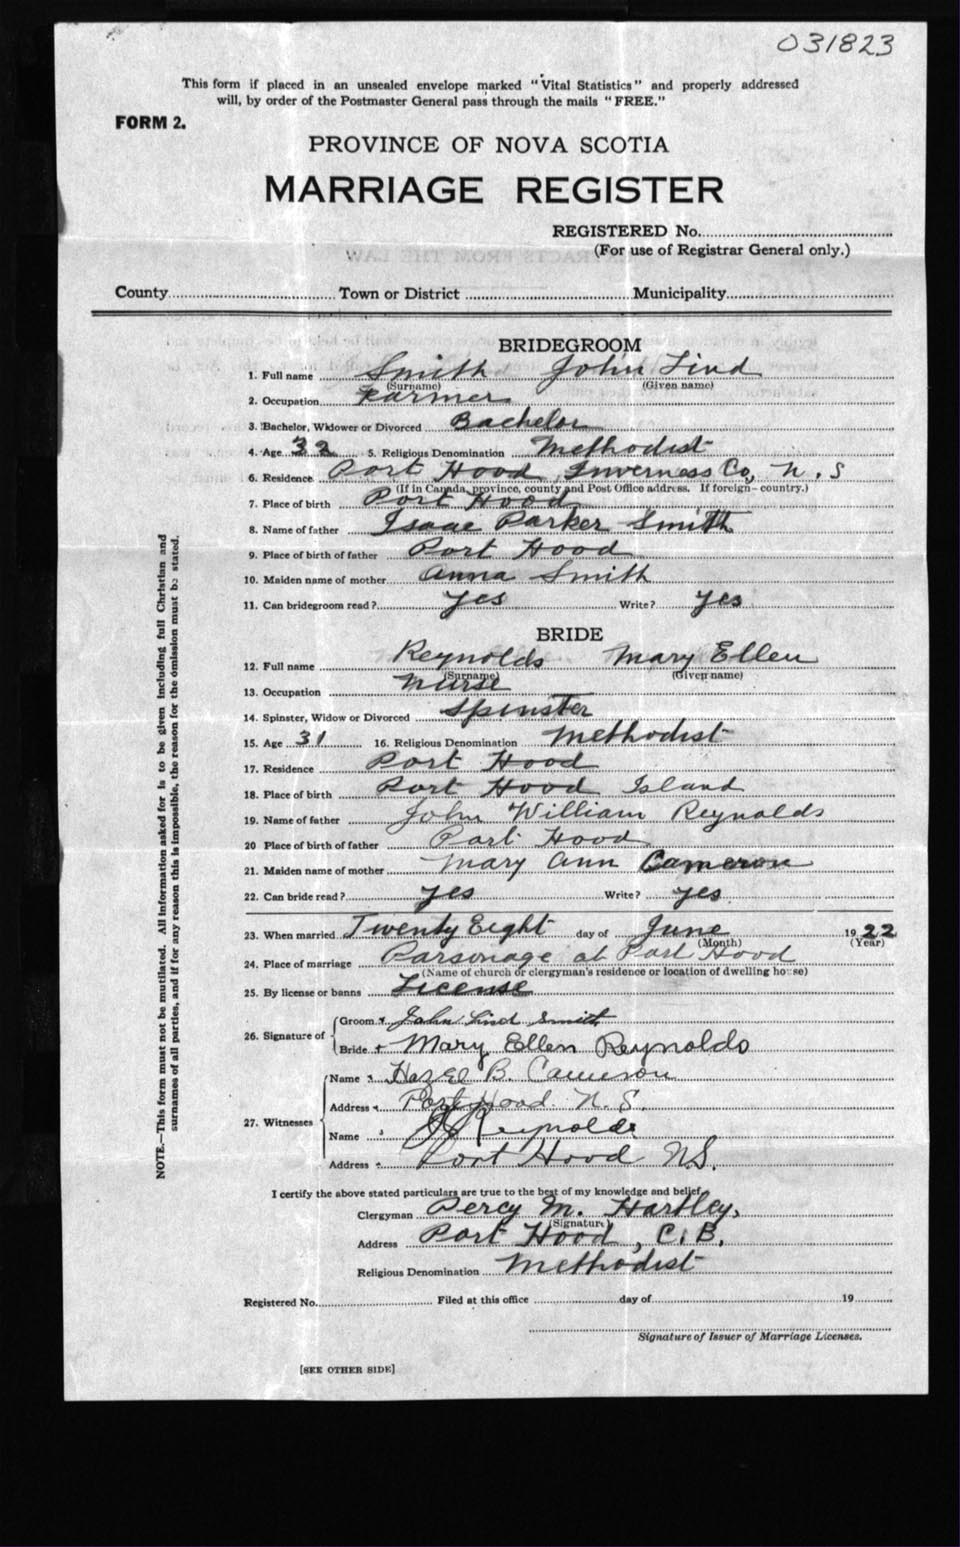 031823
This form if placed in an unsealed envelope marked "Vital Statistics" and properly addressed
will, by order of the Postmaster General pass through the mails "FREE."
FORM 2.
PROVINCE OF NOVA SCOTIA
MARRIAGE REGISTER
REGISTERED No.
(For use of Registrar General only.)
County Town or District Municipality
BRIDEGROOM
1. Full name Smith John Lind
(Surname) (Given name)
2. Occupation Farmer
3. Bachelor, Widower or Divorced Bachelor
4. Age 32 5. Religious Denomination Methodist
6. Residence Port Hood, Inverness Co, N.S
(If in Canada, province, county and Post Office address. If foreign—country.)
7. Place of birth Port Hood
8. Name of father Isaac Parker Smith
9. Place of birth of father Port Hood
10. Maiden name of mother Anna Smith
11. Can bridegroom read? yes Write? yes
BRIDE
12. Full name Reynolds Mary Ellen
(Surname) (Given name)
13. Occupation Nurse
14. Spinster, Widow or Divorced Spinster
15. Age 31 16. Religious Denomination Methodist
17. Residence Port Hood
18. Place of birth Port Hood Island
19. Name of father John William Reynolds
20 Place of birth of father Port Hood
21. Maiden name of mother Mary Ann Cameron
22. Can bride read? yes Write? yes
23. When married Twenty Eight day of June 1922
(Month) (Year)
24. Place of marriage Parsonage at Port Hood
(Name of church or clergyman's residence or location of dwelling house)
25. By license or banns License
26. Signature of Groom John Lind Smith
Bride Mary Ellen Reynolds
27. Witnesses Name Hazel B. Cameron
Address Port Hood N.S.
Name Reynolds
Address Port Hood N.S.
I certify the above stated particulars are true to the best of my knowledge and belief.
Clergyman Percy M. Hartley,
(Signature)
Address Port Hood, C.B.
Religious Denomination Methodist
Registered No. Filed at this office day of 19
Signature of Issuer of Marriage Licenses.
[SEE OTHER SIDE]
NOTE.—This form must not be mutilated. All information asked for is to be given including full Christian and
surnames of all parties, and if for any reason this is impossible, the reason for the omission must be stated.